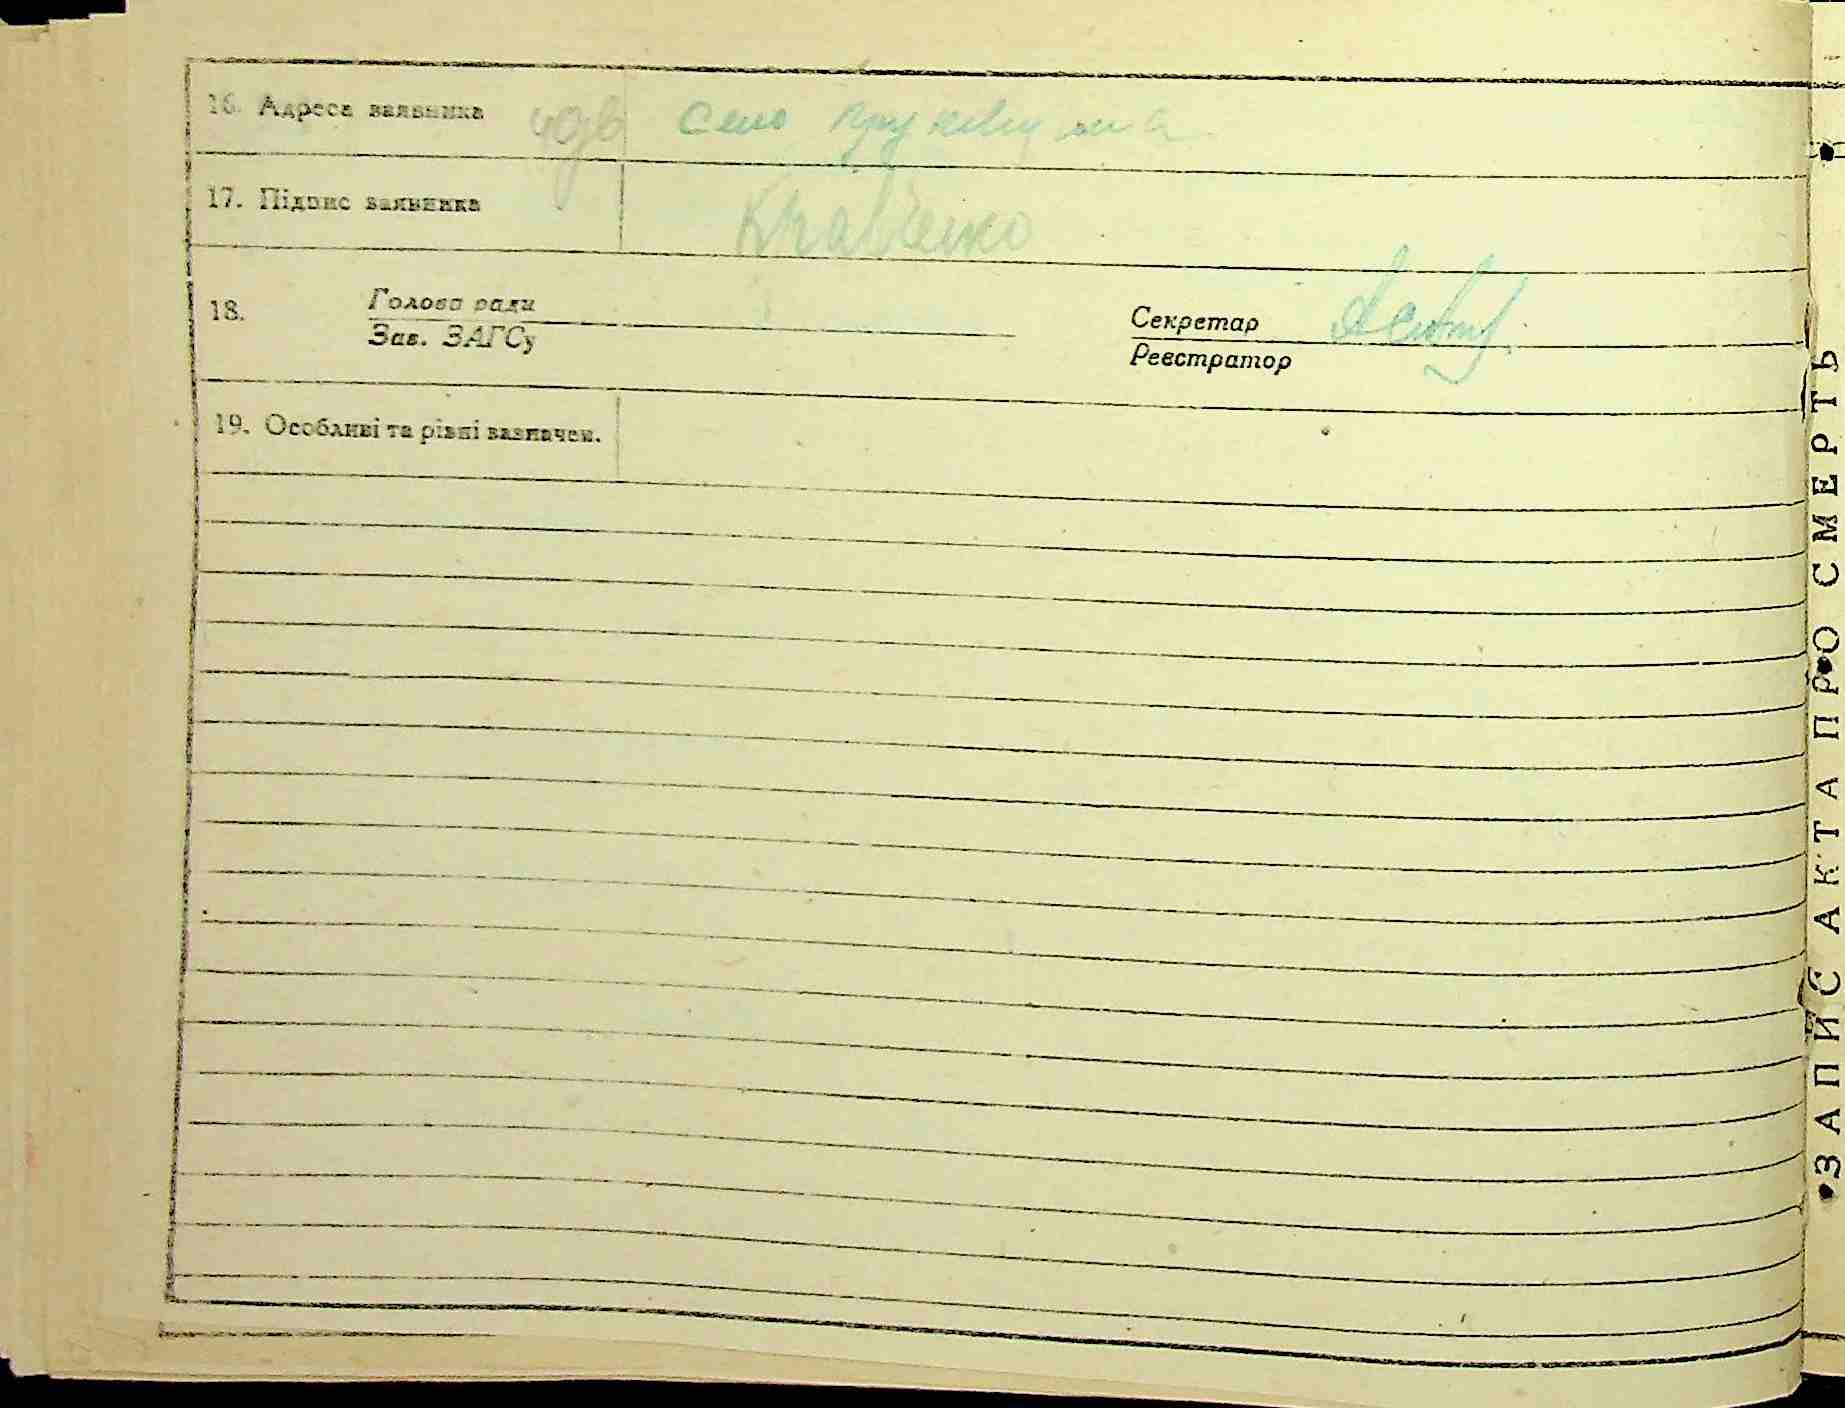 16. Адреса заявника село
17. Підпис заявника Кравченко
18. Голова ради Секретар
Зав. ЗАГСу Реєстратор
19. Особливі та різні зазначен.
ЗАПИС АКТА ПРО СМЕРТЬ